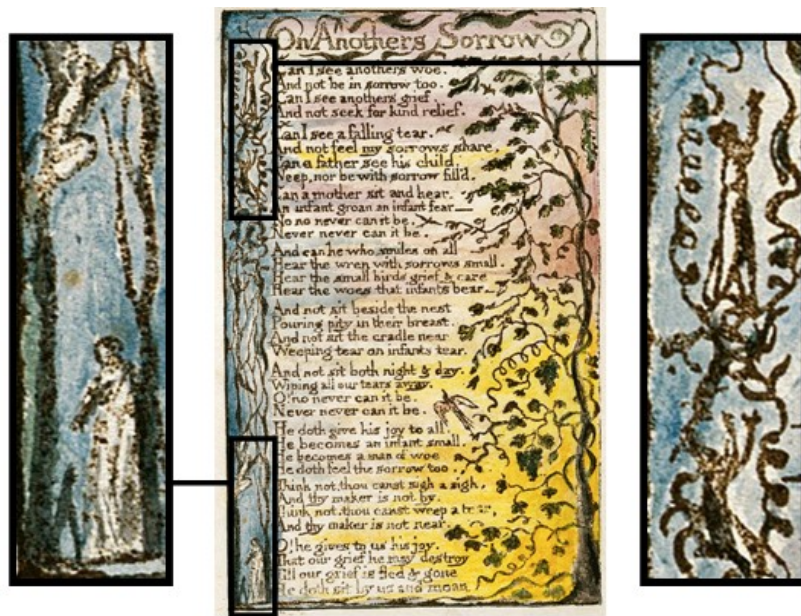 On Anothers Sorrow
Can I see anothers woe.
And not be in sorrow too.
Can I see anothers grief.
And not seek for kind relief.
Can I see a falling tear.
And not feel my sorrows share,
Can a father see his child,
Weep, nor be with sorrow fill'd.
Can a mother sit and hear.
An infant groan an infant fear
No no never can it be.
Never never can it be.
And can he who smiles on all
Hear the wren with sorrows small.
Hear the small birds grief & care
Hear the woes that infants bear
And not sit beside the nest
Pouring pity in their breast.
And not sit the cradle near
Weeping tear on infants tear.
And not sit both night & day.
Wiping all our tears away.
O! no never can it be.
Never never can it be.
He doth give his joy to all.
He becomes an infant small.
He becomes a man of woe
He doth feel the sorrow too.
Think not, thou canst sigh a sigh,
And thy maker is not by.
Think not, thou canst weep a tear,
And thy maker is not near.
O! he gives to us his joy.
That our grief he may destroy
Till our grief is fled & gone
He doth sit by us and moan